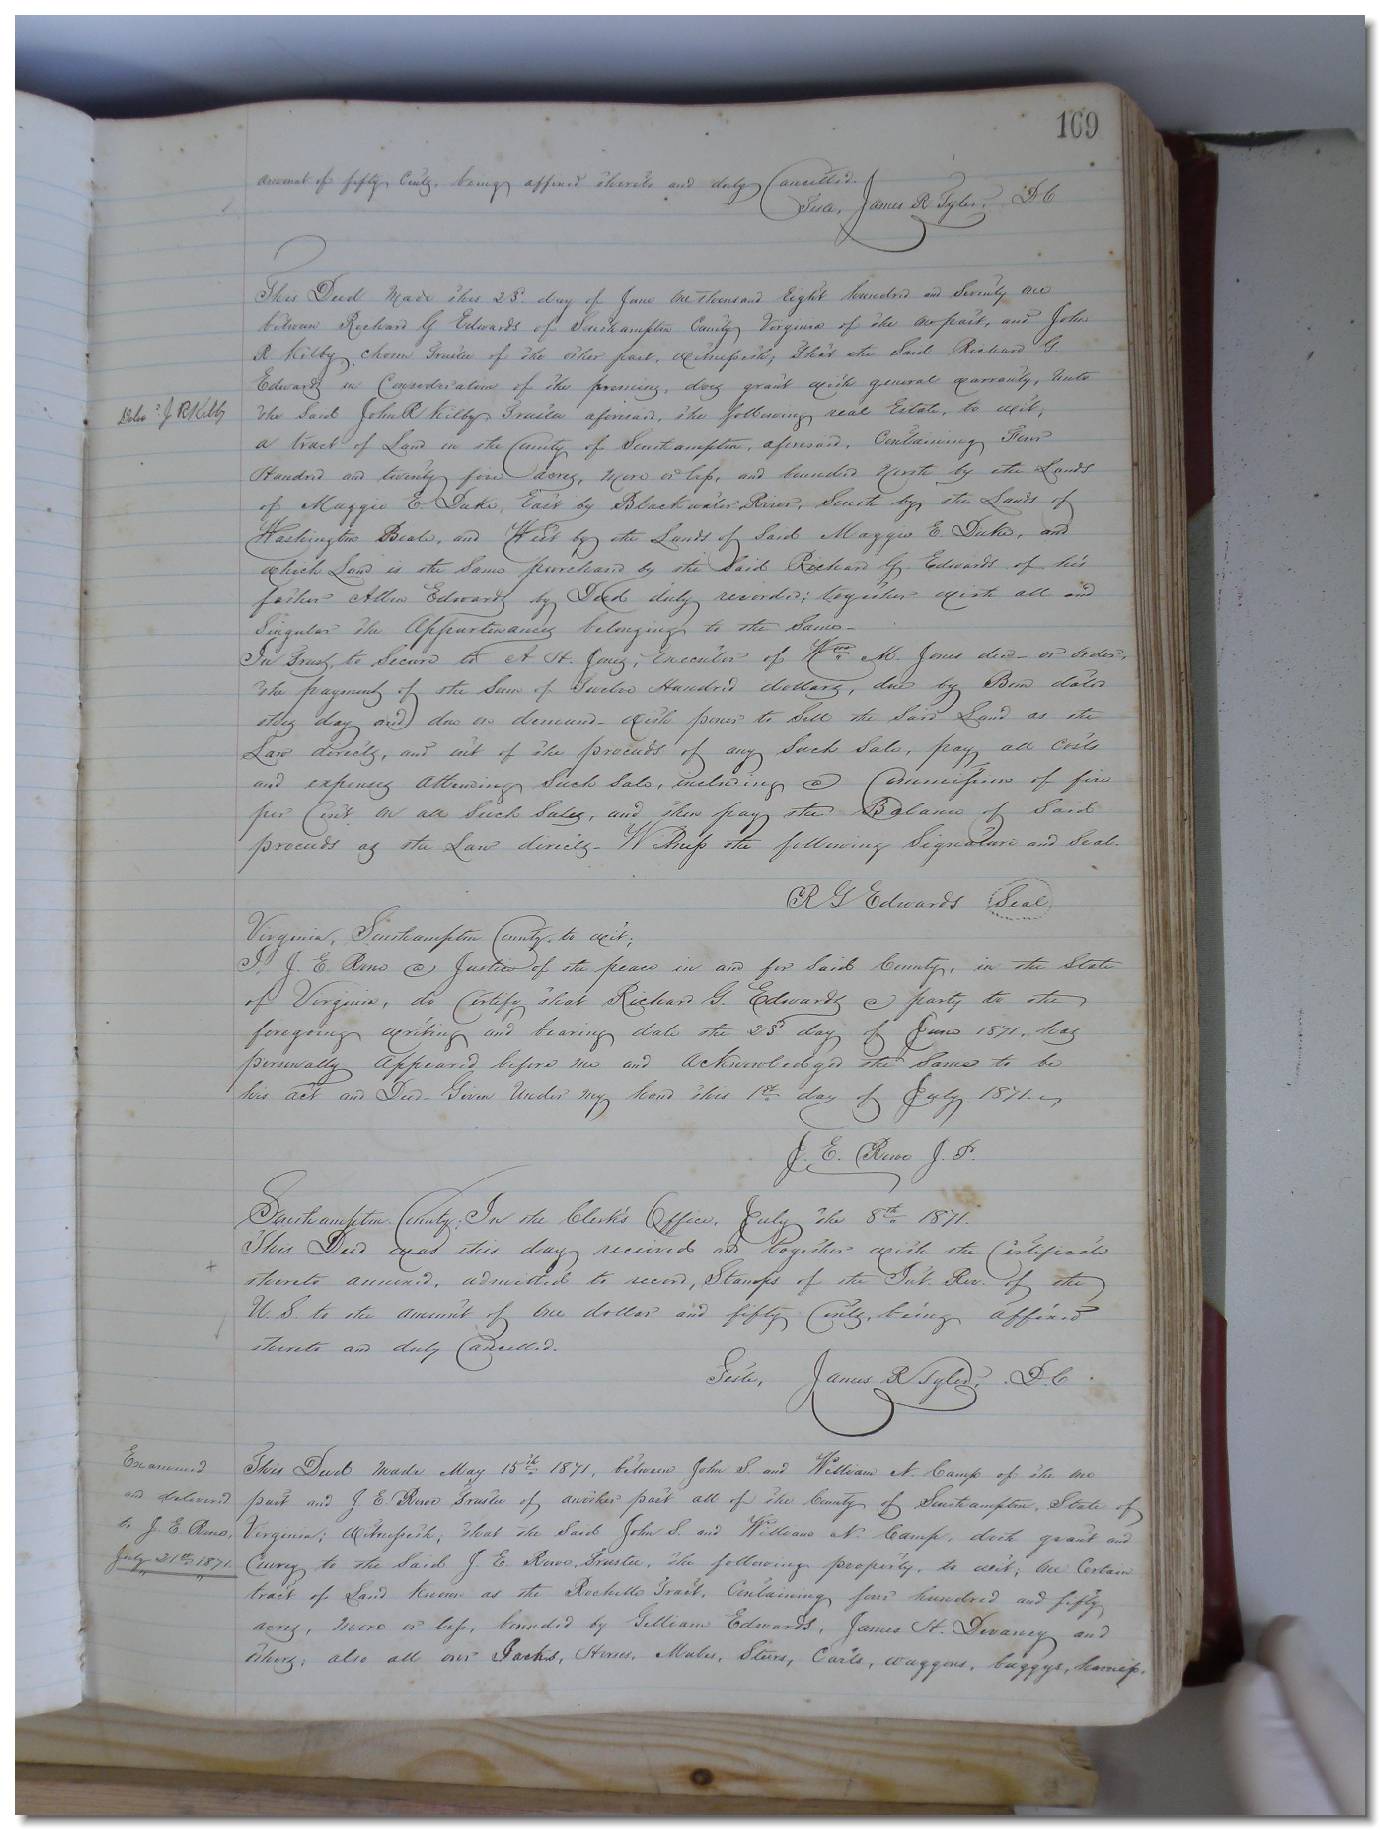 169
amount of fifty Cents, being affixed thereto and duly Cancelled.
Teste, James R Tyler, D.C
This Deed Made this 23d day of June One Thousand Eight hundred and Seventy One
between Richard G Edwards of Southampton County Virginia of the one part, and John
R Kilby chosen Trustee of the other part, witnesseth; That the Said Richard G.
Edwards in Consideration of the premises, does grant with general warranty, Unto
Delvd J R Kilby
the Said John R Kilby, Trustee aforesaid, the following real Estate, to wit;
a tract of Land in the County of Southampton, aforesaid, Containing
Hundred and twenty five acres, more or less, and bounded North by the Lands
of Maggie E. Duke, East by Blackwater River, South by the Lands of
Washington Beale, and West by the Lands of Said Maggie E. Duke, and
which Land is the Same purchased by the Said Richard G. Edwards of his
father Allen Edwards by Deed duly recorded; together with all and
Singular the Appurtenances belonging to the Same-
In Trust, to Secure to A H. Jones, Executor of Wm M. Jones decd- or order,
the payment of the Sum of Twelve Hundred dollars, due by Bond dated
this day and due on demand- with power to Sell the Said Land as the
Law directs, and out of the proceeds of any Such Sale, pay all Costs
and expenses Attending Such Sale, including a Commission of five
per Cent on all Such Sales, and then pay the Balance of Said
proceeds as the Law directs- Witness the following Signature and Seal.
R G Edwards Seal
Virginia, Southampton County, to wit;
I, J. E. Rowe a Justice of the peace in and for Said County, in the State
of Virginia, do Certify that Richard G. Edwards a party to the
foregoing writing and bearing date the 23d day of June 1871, has
personally Appeared before me and Acknowledged the Same to be
his act and Deed- Given Under my hand this 1st day of July 1871.
J. E. Rowe J. P.
Southampton County; In the Clerk's Office, July the 8th 1871.
This Deed was this day received and together with the Certificate
thereto annexed, admitted to record, Stamps of the Int. Rev. of the
U. S. to the amount of One dollar and fifty Cents, being affixed
thereto and duly Cancelled.
Teste, James R Tyler, D.C
Examined
and delivered
to J. E. Rowe,
July 21st 1871.
This Deed made May 15th 1871, between John S. and William N. Camp of the one
part and J. E. Rowe Trustee of another part all of the County of Southampton, State of
Virginia; Witnesseth, that the Said John S. and William N. Camp, doth grant and
Convey to the Said J. E. Rowe, Trustee, the following property, to wit; One Certain
tract of Land known as the Rochelle Tract, Containing four hundred and fifty
acres, more or less, bounded by Gilliam Edwards, James H. Devaney and
others; also all our Jacks, Horses, Mules, Steers, Carts, waggons, buggys, harness,